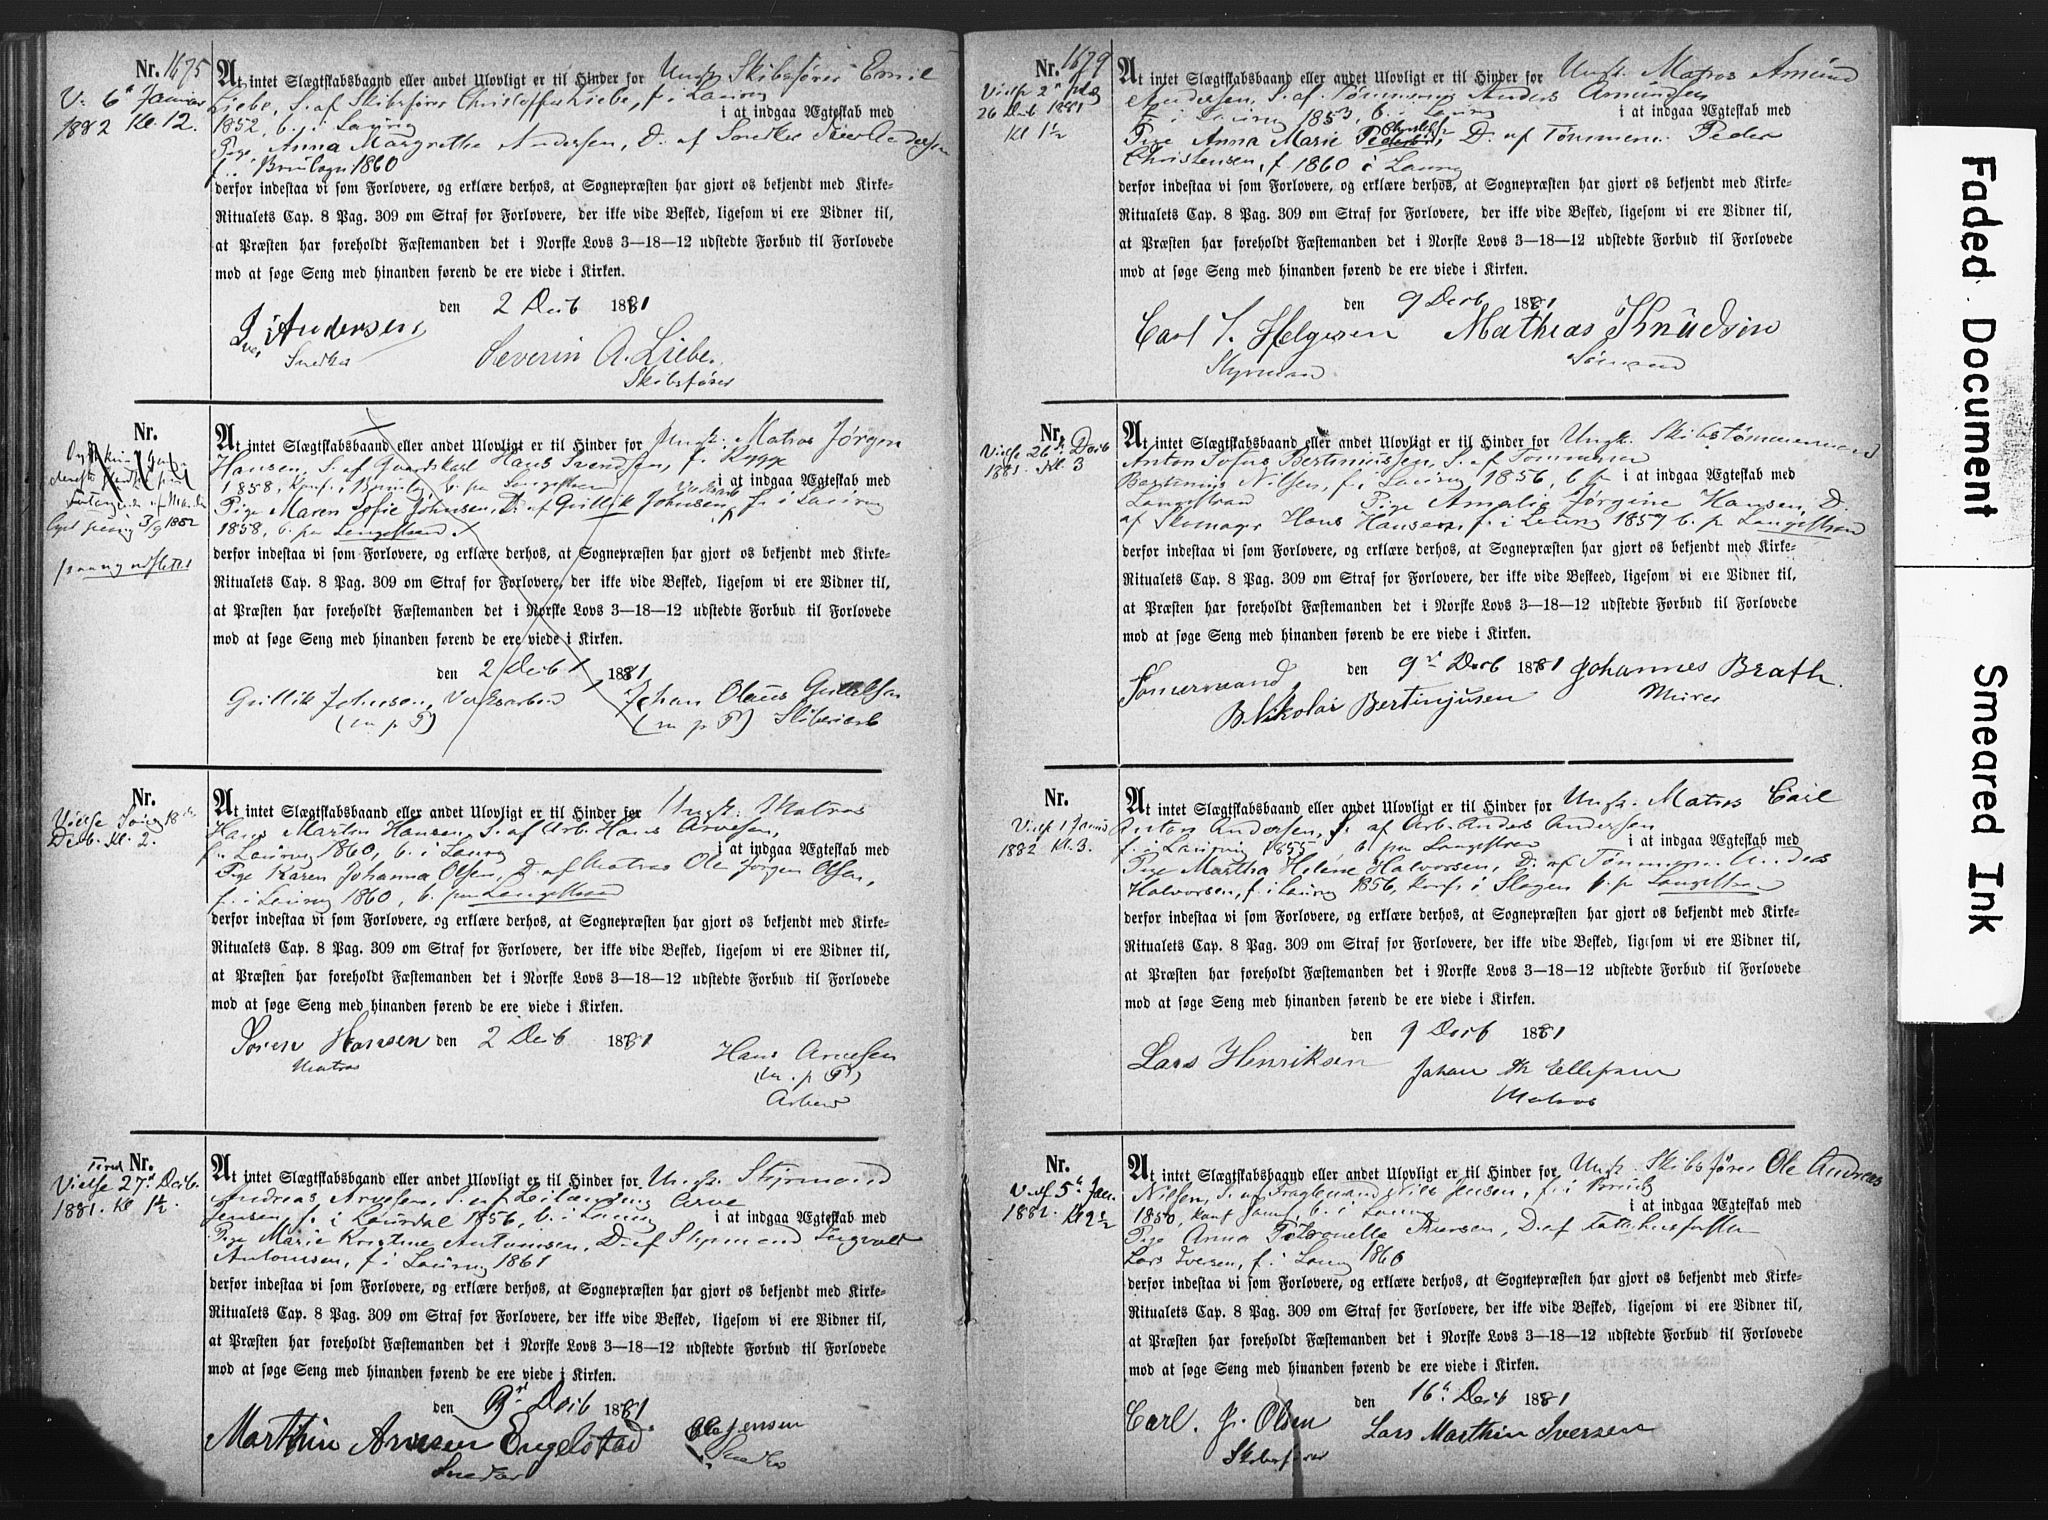 Nr. 1675
V. 6
1882 Kl. 12.
At intet Slægtskabsbaand eller andet Ulovligt er til Hinder for Ungk. Skibsfører Emil
Liebe, S. af Skibsfører Christoffer Liebe, f. i Laurvig
1852, b. i Laurvig i at indgaa Ægteskab med
Pige Anna Margrethe Andersen, D. af Snedker Iver Andersen
f. i Brunlagn 1860
derfor indestaa vi som Forlovere, og erklære derhos, at Sognepræsten har gjort os bekjendt med Kirke-
Ritualets Cap. 8 Pag. 309 om Straf for Forlovere, der ikke vide Besked, ligesom vi ere Vidner til,
at Præsten har foreholdt Fæstemanden det i Norske Lovs 3—18—12 udstedte Forbud til Forlovede
mod at søge Seng med hinanden førend de ere viede i Kirken.
den 2 Decb 1881
Iver Andersen
Snedker
Severin A. Liebe.
Skibsfører
Nr.
3/9 1882
At intet Slægtskabsbaand eller andet Ulovligt er til Hinder for Ungk. Matros Jørgen
Hansen, S. af Gaardskarl Hans Svendsen, f. i Rygge
1858, konf. i b. paa Langestrand i at indgaa Ægteskab med
Pige Maren Sofie Johnsen, D. af Gullik Johnsen, f. i Laurvig
1858, b. paa Langestrand
derfor indestaa vi som Forlovere, og erklære derhos, at Sognepræsten har gjort os bekjendt med Kirke-
Ritualets Cap. 8 Pag. 309 om Straf for Forlovere, der ikke vide Besked, ligesom vi ere Vidner til,
at Præsten har foreholdt Fæstemanden det i Norske Lovs 3—18—12 udstedte Forbud til Forlovede
mod at søge Seng med hinanden førend de ere viede i Kirken.
den 2 Decb 1881
Gullik Johnsen, Verksarbeid
(m. p. P)
Johan Olaus Gulliksen
(m. p. P)
Nr.
Vielse 18
Decb. Kl. 2.
At intet Slægtskabsbaand eller andet Ulovligt er til Hinder for Ungk. Matros
Hans Martin Hansen, S. af Arb. Hans Arvesen,
f. i Laurvig 1860, b. i Laurvig i at indgaa Ægteskab med
Pige Karen Johanna Olsen, D. af Matros Ole Jørgen Olsen,
f. i Laurvig 1860, b. paa Langestrand
derfor indestaa vi som Forlovere, og erklære derhos, at Sognepræsten har gjort os bekjendt med Kirke-
Ritualets Cap. 8 Pag. 309 om Straf for Forlovere, der ikke vide Besked, ligesom vi ere Vidner til,
at Præsten har foreholdt Fæstemanden det i Norske Lovs 3—18—12 udstedte Forbud til Forlovede
mod at søge Seng med hinanden førend de ere viede i Kirken.
den 2 Decb 1881
Søren Hansen
Matros
Hans Arvesen
(m. p. P)
Arbeid
Nr.
Vielse 27 Decb.
1881. Kl 1½.
At intet Slægtskabsbaand eller andet Ulovligt er til Hinder for Ungk. Styrmand
Andreas Arvesen, S. af Arve
Jensen, f. i Laurdal 1856, b. i Laurvig i at indgaa Ægteskab med
Pige Marie Kristine Antonisen, D. af Styrmand Ingvald
Antonisen, f. i Laurvig 1861
derfor indestaa vi som Forlovere, og erklære derhos, at Sognepræsten har gjort os bekjendt med Kirke-
Ritualets Cap. 8 Pag. 309 om Straf for Forlovere, der ikke vide Besked, ligesom vi ere Vidner til,
at Præsten har foreholdt Fæstemanden det i Norske Lovs 3—18—12 udstedte Forbud til Forlovede
mod at søge Seng med hinanden førend de ere viede i Kirken.
den 9 Decb 1881
Marthin Arvesen Engelstad
Snedker
Ole Jensen
Snedker
Nr. 1679
Vielse 2
26 Decb 1881
Kl 1½
At intet Slægtskabsbaand eller andet Ulovligt er til Hinder for Ungk. Matros Amund
Andersen, S. af Tømmerm Anders Amundsen
f. i Laurvig 1853, b. i Laurvig i at indgaa Ægteskab med
Pige Anna Marie D. af Tømmerm: Peder
Christensen, f. 1860 i Laurvig
derfor indestaa vi som Forlovere, og erklære derhos, at Sognepræsten har gjort os bekjendt med Kirke-
Ritualets Cap. 8 Pag. 309 om Straf for Forlovere, der ikke vide Besked, ligesom vi ere Vidner til,
at Præsten har foreholdt Fæstemanden det i Norske Lovs 3—18—12 udstedte Forbud til Forlovede
mod at søge Seng med hinanden førend de ere viede i Kirken.
den 9 Decb 1881
Carl S. Helgesen
Styrmand
Mathias Knudsen
Sømand
Nr.
Vielse 26 Decb
1881. Kl. 3
At intet Slægtskabsbaand eller andet Ulovligt er til Hinder for Ungk. Skibstømmermand
Anton Sofus Bertiniussen, S. af Tømmerm
Bertinius Nilsen, f. i Laurvig 1856, b. paa i at indgaa Ægteskab med
Langestrand Pige Amalie Jørgine Hansen, D.
af Skomager Hans Hansen, f. i Laurvig 1857 b. paa Langestrand
derfor indestaa vi som Forlovere, og erklære derhos, at Sognepræsten har gjort os bekjendt med Kirke-
Ritualets Cap. 8 Pag. 309 om Straf for Forlovere, der ikke vide Beskeed, ligesom vi ere Vidner til,
at Præsten har foreholdt Fæstemanden det i Norske Lovs 3—18—12 udstedte Forbud til Forlovede
mod at søge Seng med hinanden førend de ere viede i Kirken.
den 9 Decb 1881
Tømermand
B. Nikolai Bertinjusen
Johannes Brath.
Murer
Nr.
Vielse 1 Janu
1882 Kl. 3.
At intet Slægtskabsbaand eller andet Ulovligt er til Hinder for Ungk. Matros Carl
Anton Andersen, S. af Arb. Anders Andersen
f. i Laurvig 1855 b. paa Langestrand i at indgaa Ægteskab med
Pige Martha Helene Halvorsen, D. af Tømmerm. Anders
Halvorsen, f. i Laurvig 1856, konf. i Slagen b. paa Langestran
derfor indestaa vi som Forlovere, og erklære derhos, at Sognepræsten har gjort os bekjendt med Kirke-
Ritualets Cap. 8 Pag. 309 om Straf for Forlovere, der ikke vide Besked, ligesom vi ere Vidner til,
at Præsten har foreholdt Fæstemanden det i Norske Lovs 3—18—12 udstedte Forbud til Forlovede
mod at søge Seng med hinanden førend de ere viede i Kirken.
den 9 Decb 1881
Lars Henriksen
Johan Ellefsen
Matros
Nr.
Vielse 5 Jan.
1882. Kl 2½
At intet Slægtskabsbaand eller andet Ulovligt er til Hinder for Ungk. Skibsfører Ole Andreas
Nilsen, S. af Nils Jensen, f. i
1850, b. i Laurvig i at indgaa Ægteskab med
Pige Anna Petronelle Iversen, D. af
Lars Iversen, f. i Laurvig 1860
derfor indestaa vi som Forlovere, og erklære derhos, at Sognepræsten har gjort os bekjendt med Kirke-
Ritualets Cap. 8 Pag. 309 om Straf for Forlovere, der ikke vide Besked, ligesom vi ere Vidner til,
at Præsten har foreholdt Fæstemanden det i Norske Lovs 3—18—12 udstedte Forbud til Forlovede
mod at søge Seng med hinanden førend de ere viede i Kirken.
den 16 Decb 1881
Carl. J. Olsen
Skibsfører
Lars Marthin Iversen
Faded Document
Smeared Ink